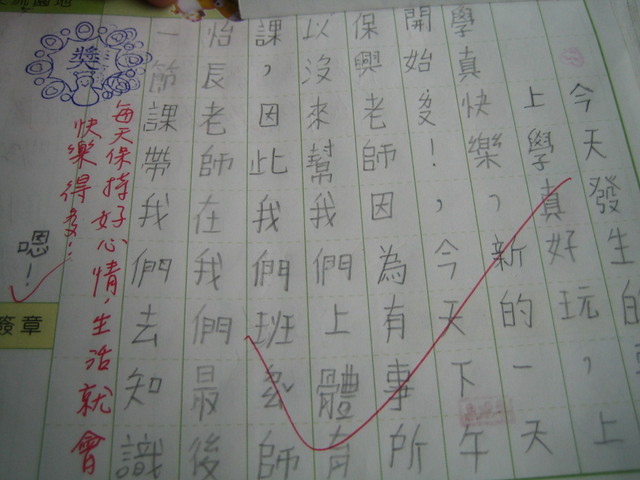 今天發生的
上學真好玩，上
學真快樂，新的一天
開始多！，今天下午
保興老師因為有事所
以沒來幫我們上體有
課，因此我們班師
怡長老師在我們最後
一節課帶我們去知識
每天保持好心情，生活就會
快樂得多！
獎
嗯！
簽章